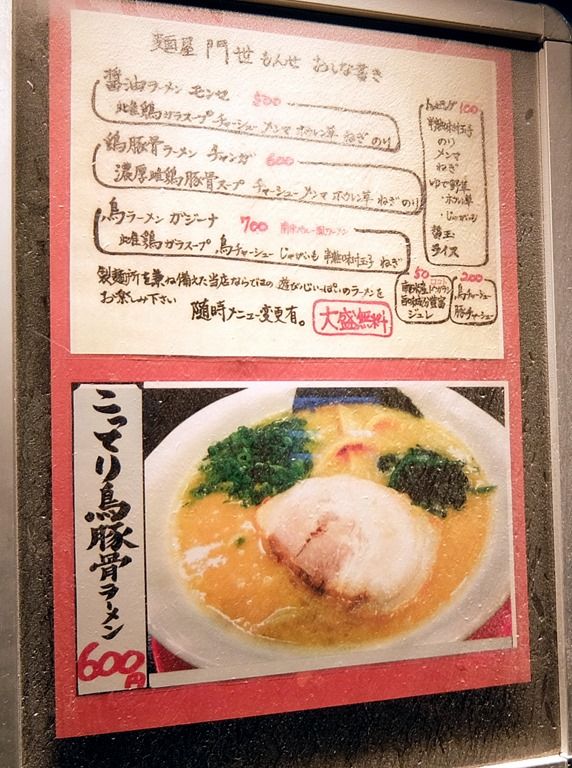 麺屋 門世 もんせ おしな書き
醤油ラーメン モンセ 500
雌鶏ガラスープ チャーシュー メンマ ホウレン草 ねぎ のり
鶏豚骨ラーメン チャンガ 600
濃厚雌鶏豚骨スープ チャーシュー メンマ ホウレン草 ねぎ のり
鳥ラーメン ガジーナ 700
雌鶏ガラスープ 鳥チャーシュー じゃがいも 半熟味付玉子 ねぎ
製麺所を兼ね備えた当店ならではの 遊び心いっぱいのラーメンを
お楽しみ下さい 随時メニュー変更有。 大盛無料
トッピング 100
半熟味付玉子
のり
メンマ
ねぎ
ゆで野菜
・ホウレン草
・じゃがいも
替玉
ライス
50
旨味成分豊富
ジュレ
200
鳥チャーシュー
豚チャーシュー
こってり鳥豚骨ラーメン
600円